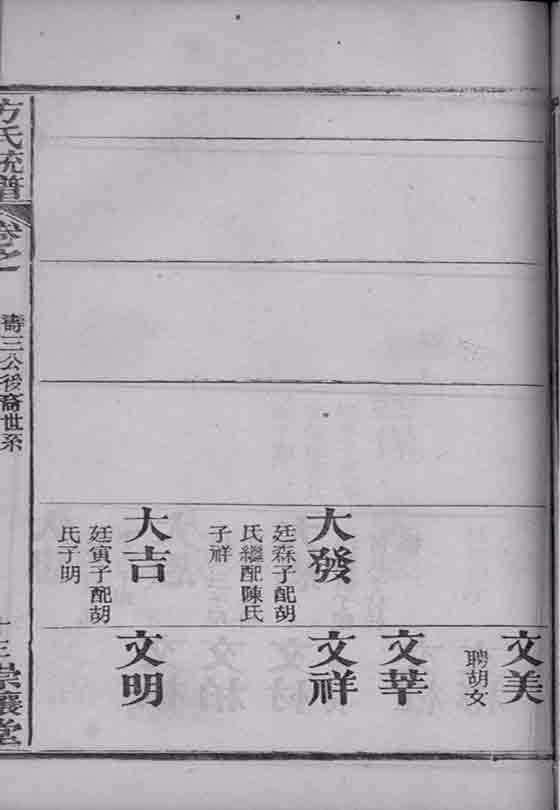 大發
廷森子配胡
氏繼配陳氏
子祥
大吉
廷寅子配胡
氏子明
文美
聘胡文
文莘
文祥
文明
方氏統譜
卷之
壽三公後裔世系
崇讓堂